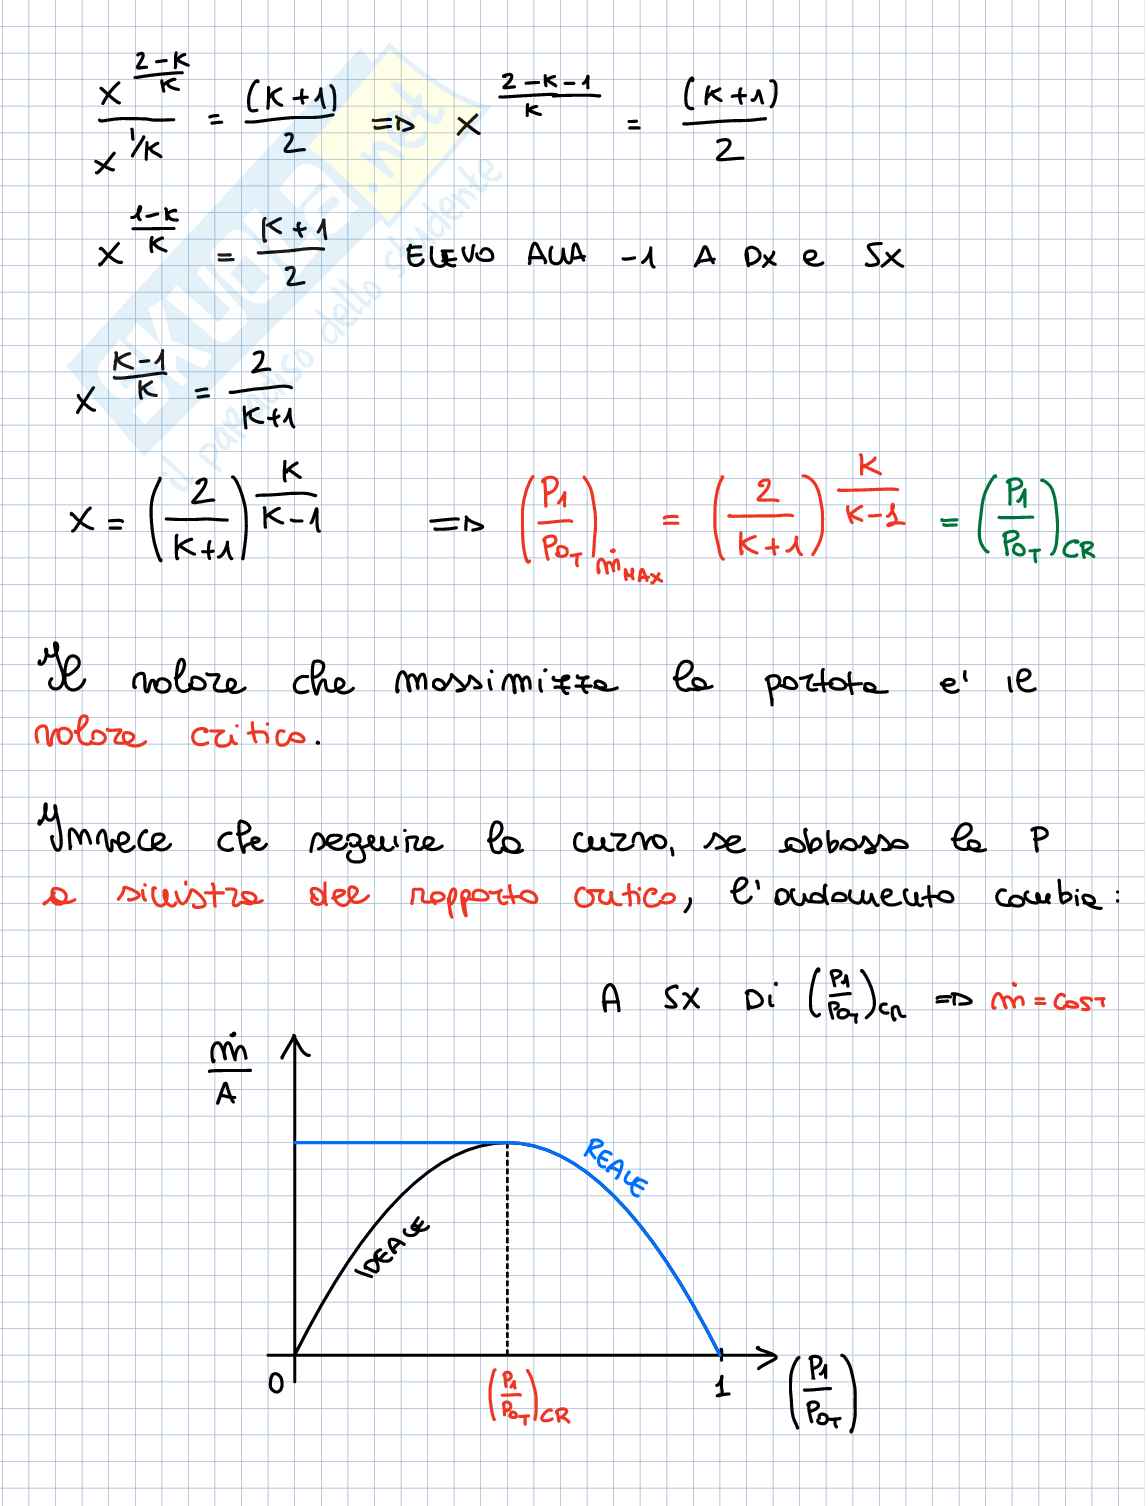 x^((2-K)/K) / x^(1/K) = (K+1)/2 => x^((2-K-1)/K) = (K+1)/2
x^((1-K)/K) = (K+1)/2 ELEVO ALLA -1 A Dx e Sx
x^((K-1)/K) = 2/(K+1)
x = (2/(K+1))^(K/(K-1)) => (P1/P0T)ṁMAX = (2/(K+1))^(K/(K-1)) = (P1/P0T)CR
Il valore che massimizza la portata e' il
valore critico.
Invece che seguire la curva, se abbasso la P
a sinistra del rapporto critico, l'andamento cambia:
A SX Di (P1/P0T)CR => ṁ = cosT
ṁ/A
REALE
IDEALE
0
(P1/P0T)CR
1
(P1/P0T)
SKUOLA.net
il paradiso dello studente